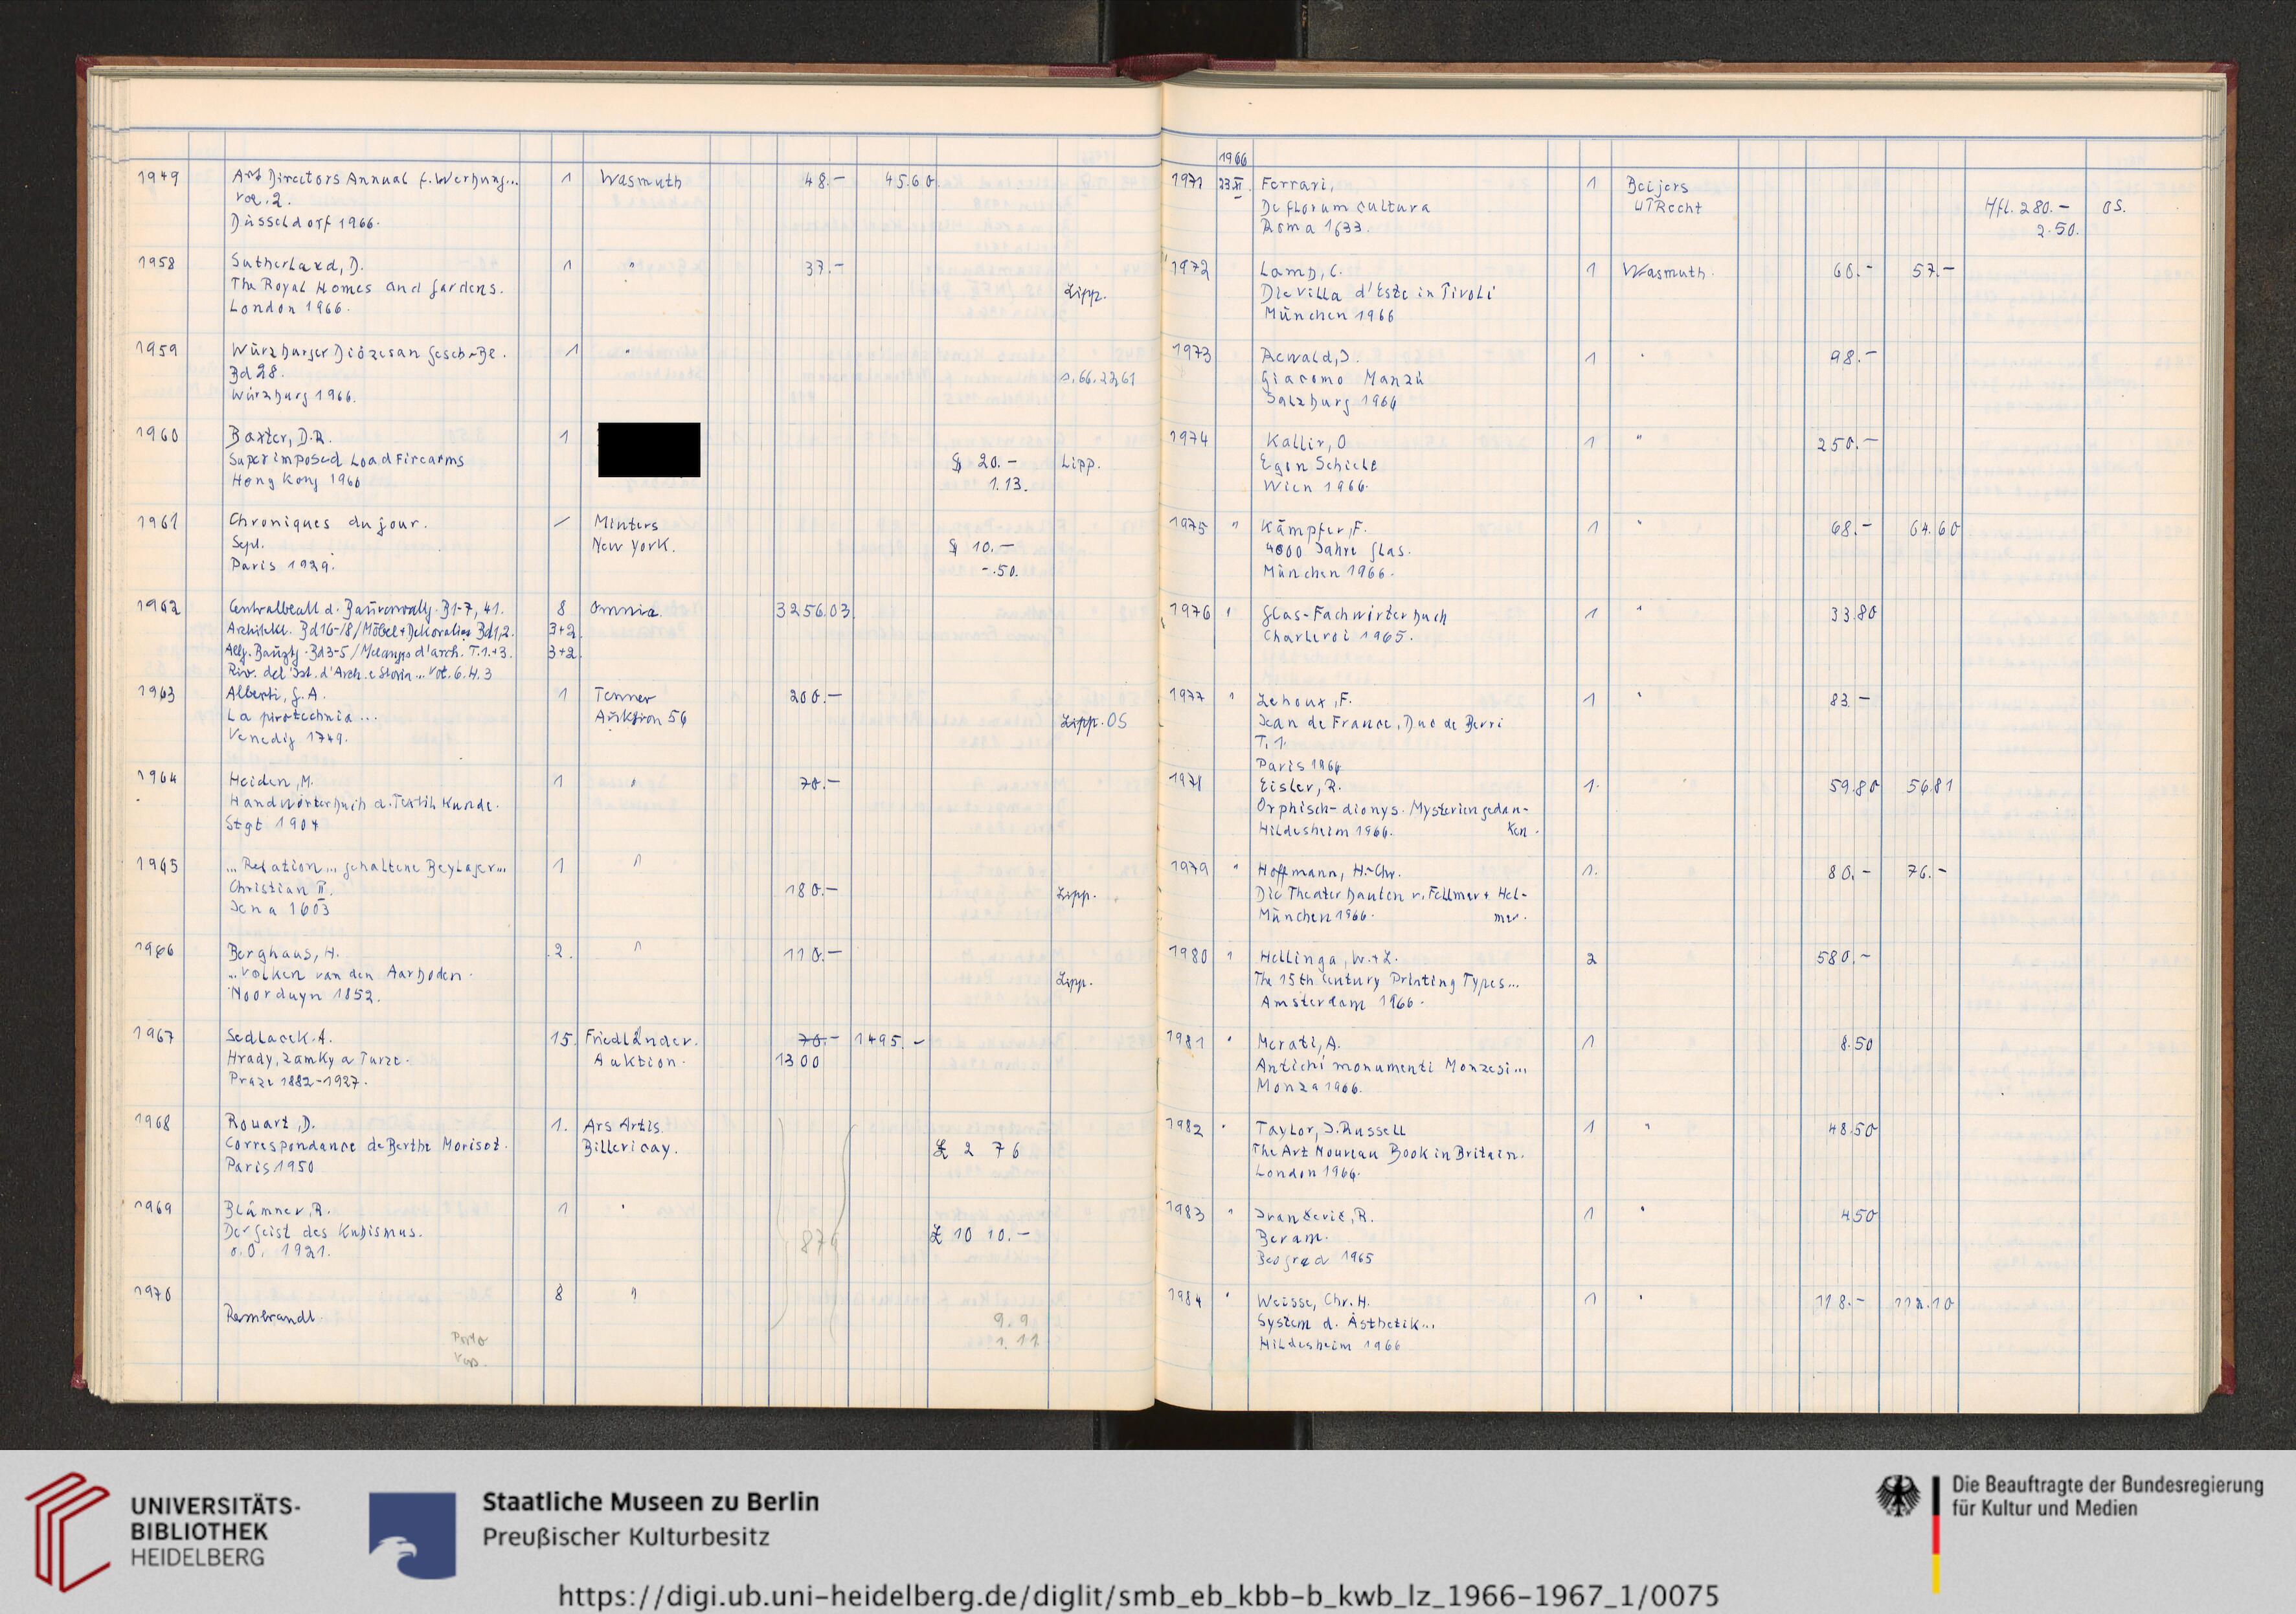 1949 Art Directors Annual f. Werbung... 1 Wasmuth 48.- 45.60
Vol. 2.
Düsseldorf 1966.
1958 Sutherland, D. 1 " 37.-
The Royal Homes and Gardens. Lipp.
London 1966.
1959 Würzburger Diözesan Gesch. Bl. 1 "
Bd 28. s. 66.2261
Würzburg 1966.
1960 Baxter, D.R. 1
Superimposed Load Firearms $ 20.- Lipp.
Hong Kong 1966 1.13.
1961 Chroniques du jour. - Minters
Sept. New York. $ 10.-
Paris 1929. -.50.
1962 Centralblatt d. Bauverwaltg. B 1-7, 41. 8 Omnia 3256.03
Architekt. Bd 16-18/Möbel + Dekoration Bd 1,2. 3+2
Allg. Bauztg. Bd 3-5/Melanges d'arch. T. 1.+3. 3+2
Riv. del'Ist. d'Arch. e Storia... Vol. 6. H. 3
1963 Alberti, G.A. 1 Tenner 200.-
La pirotechnia... Auktion 56 Lipp. OS
Venedig 1749.
1964 Heiden, M. 1 " 70.-
Handwörterbuch d. Textilkunde.
Stgt 1904
1965 ...Relation... gehaltene Beylager... 1 "
Christian II. 180.- Lipp.
Jena 1603
1966 Berghaus, H. 2. " 110.-
...Volken van den Aarboden. Lipp.
Noorduyn 1852.
1967 Sedlacek. A. 15. Friedländer. 70.- 1495.-
Hrady, zamky a Turze. Auktion. 1300
Praze 1882-1927.
1968 Rouart, D. 1. Ars Artis.
Correspondance de Berthe Morisot. Billericay. £ 2 7 6
Paris 1950
1969 Blümner, R. 1 "
Der Geist des Kubismus. £ 10 10.-
o.O. 1921.
1970 8 "
Rembrandt 9.9
Porto 1.11
1966
1971 23.XI. Ferrari, 1 Beijers
De florum cultura UTRecht Hfl. 280.- OS.
Roma 1633. 2.50.
1972 Lamb, C. 1 Wasmuth. 60.- 57.-
Die Villa d'Este in Tivoli
München 1966
1973 Rewald, J. 1 " 98.-
Giacomo Manzù
Salzburg 1966
1974 Kallir, O 1 " 250.-
Egon Schiele
Wien 1966.
1975 " Kämpfer, F. 1 " 68.- 64.60
4000 Jahre Glas.
München 1966.
1976 " Glas-Fachwörterbuch 1 " 33.80
Charleroi 1965.
1977 " Lehoux, F. 1 " 83.-
Jean de France, Duc de Berri
T. 1.
Paris 1966
1978 Eisler, R. 1. " 59.80 56.81
Orphisch-dionys. Mysteriengedan-
Hildesheim 1966. ken.
1979 " Hoffmann, H.-Chr. 1. 80.- 76.-
Die Theaterbauten v. Fellmer + Hel-
München 1966. mer.
1980 " Hellinga, W. + L. 2 580.-
The 15th Century Printing Types...
Amsterdam 1966.
1981 " Merati, A. 1 8.50
Antichi monumenti Monzesi...
Monza 1966.
1982 " Taylor, J. Russell 1 " 48.50
The Art Nouveau Book in Britain.
London 1966.
1983 " Ivančević, R. 1 " 4.50
Beram.
Beograd 1965
1984 " Weisse, Chr. H. 1 " 118.- 112.10
System d. Ästhetik...
Hildesheim 1966
UNIVERSITÄTS-
BIBLIOTHEK
HEIDELBERG
Staatliche Museen zu Berlin
Preußischer Kulturbesitz
Die Beauftragte der Bundesregierung
für Kultur und Medien
https://digi.ub.uni-heidelberg.de/diglit/smb_eb_kbb-b_kwb_lz_1966-1967_1/0075